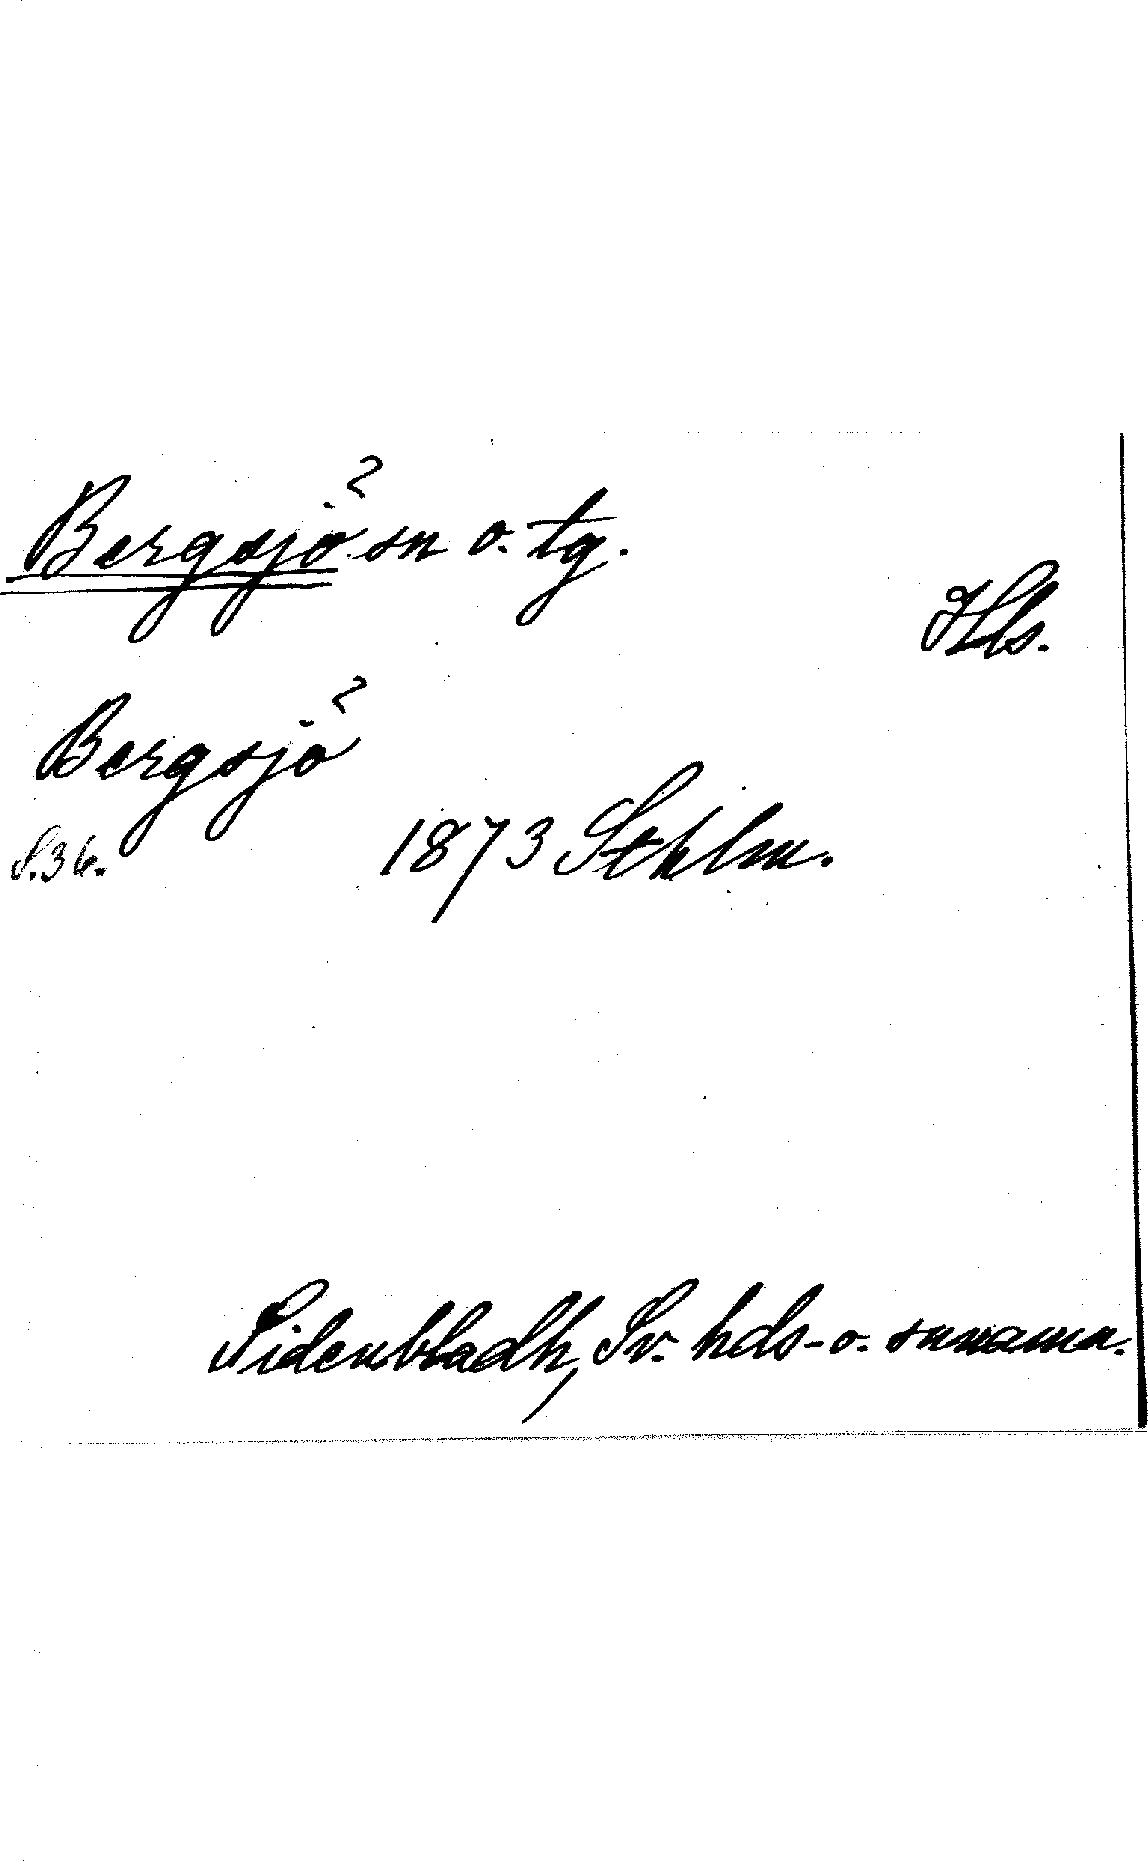 Bergsjö² sn o. tg.
Hls.
Bergsjö²
S. 36. 1873 Sthlm.
Sidenbladh, Sv. hds- o. snnamn.